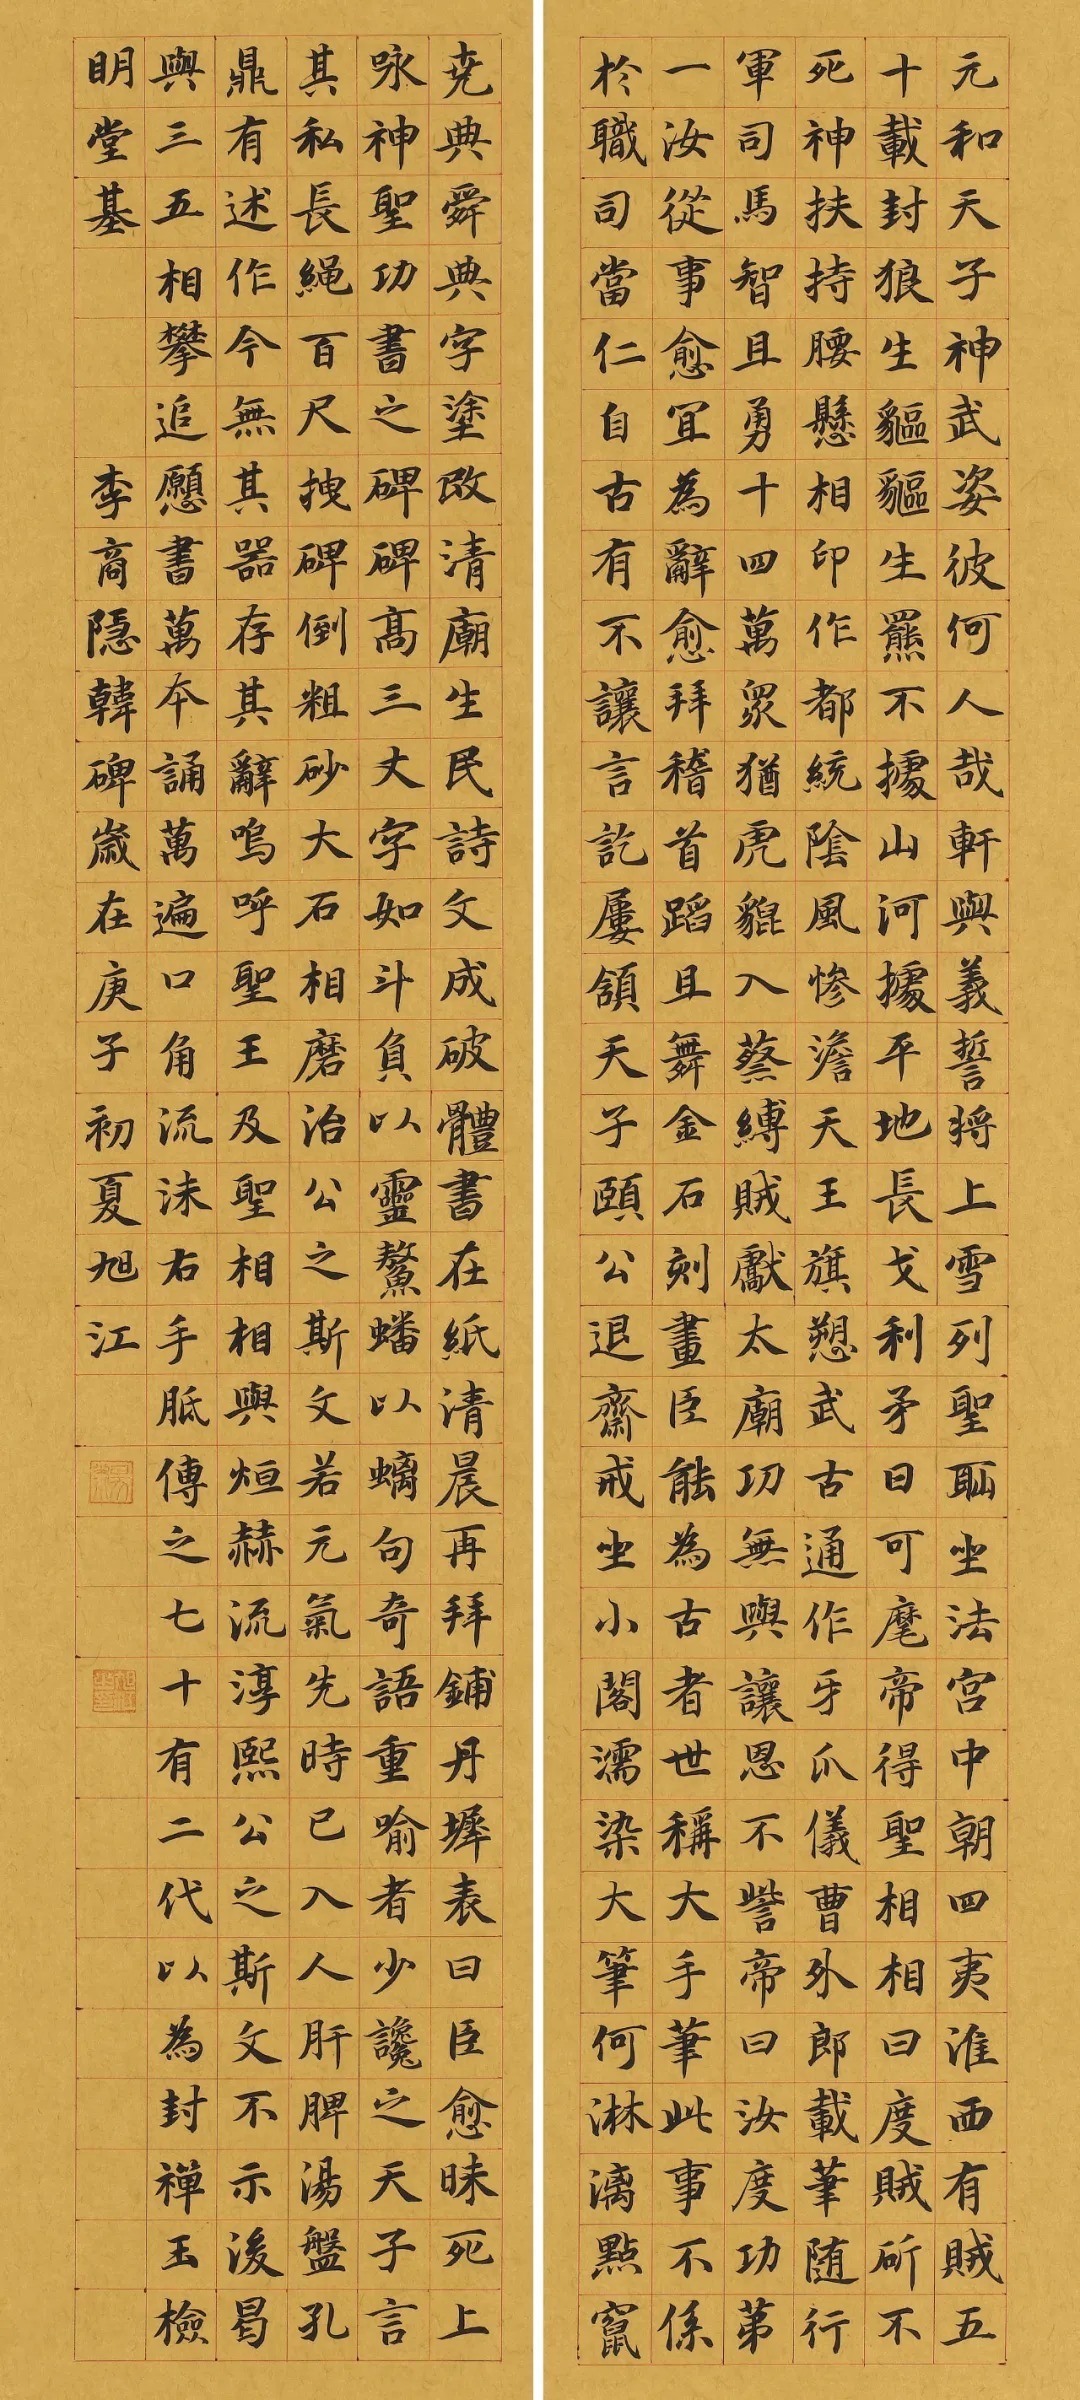 元和天子神武姿彼何人哉軒與羲誓將上雪列聖恥坐法宮中朝四夷淮西有賊五
十載封狼生貙貙生羆不據山河據平地長戈利矛日可麾帝得聖相相曰度賊斫不
死神扶持腰懸相印作都統陰風慘澹天王旗愬武古通作牙爪儀曹外郎載筆随行
軍司馬智且勇十四萬眾猶虎貔入蔡縛賊獻太廟功無與讓恩不訾帝曰汝度功第
一汝從事愈宜為辭愈拜稽首蹈且舞金石刻畫臣能為古者世稱大手筆此事不係
於職司當仁自古有不讓言訖屢頷天子頤公退齋戒坐小閣濡染大筆何淋漓點竄
堯典舜典字塗改清廟生民詩文成破體書在紙清晨再拜鋪丹墀表曰臣愈昧死上
咏神聖功書之碑碑高三丈字如斗負以靈鰲蟠以螭句奇語重喻者少讒之天子言
其私長繩百尺拽碑倒粗砂大石相磨治公之斯文若元氣先時已入人肝脾湯盤孔
鼎有述作今無其器存其辭嗚呼聖王及聖相相與烜赫流淳熙公之斯文不示後曷
與三五相攀追願書萬本誦萬遍口角流沫右手胝傳之七十有二代以為封禪玉檢
明堂基 李商隱韓碑歲在庚子初夏旭江